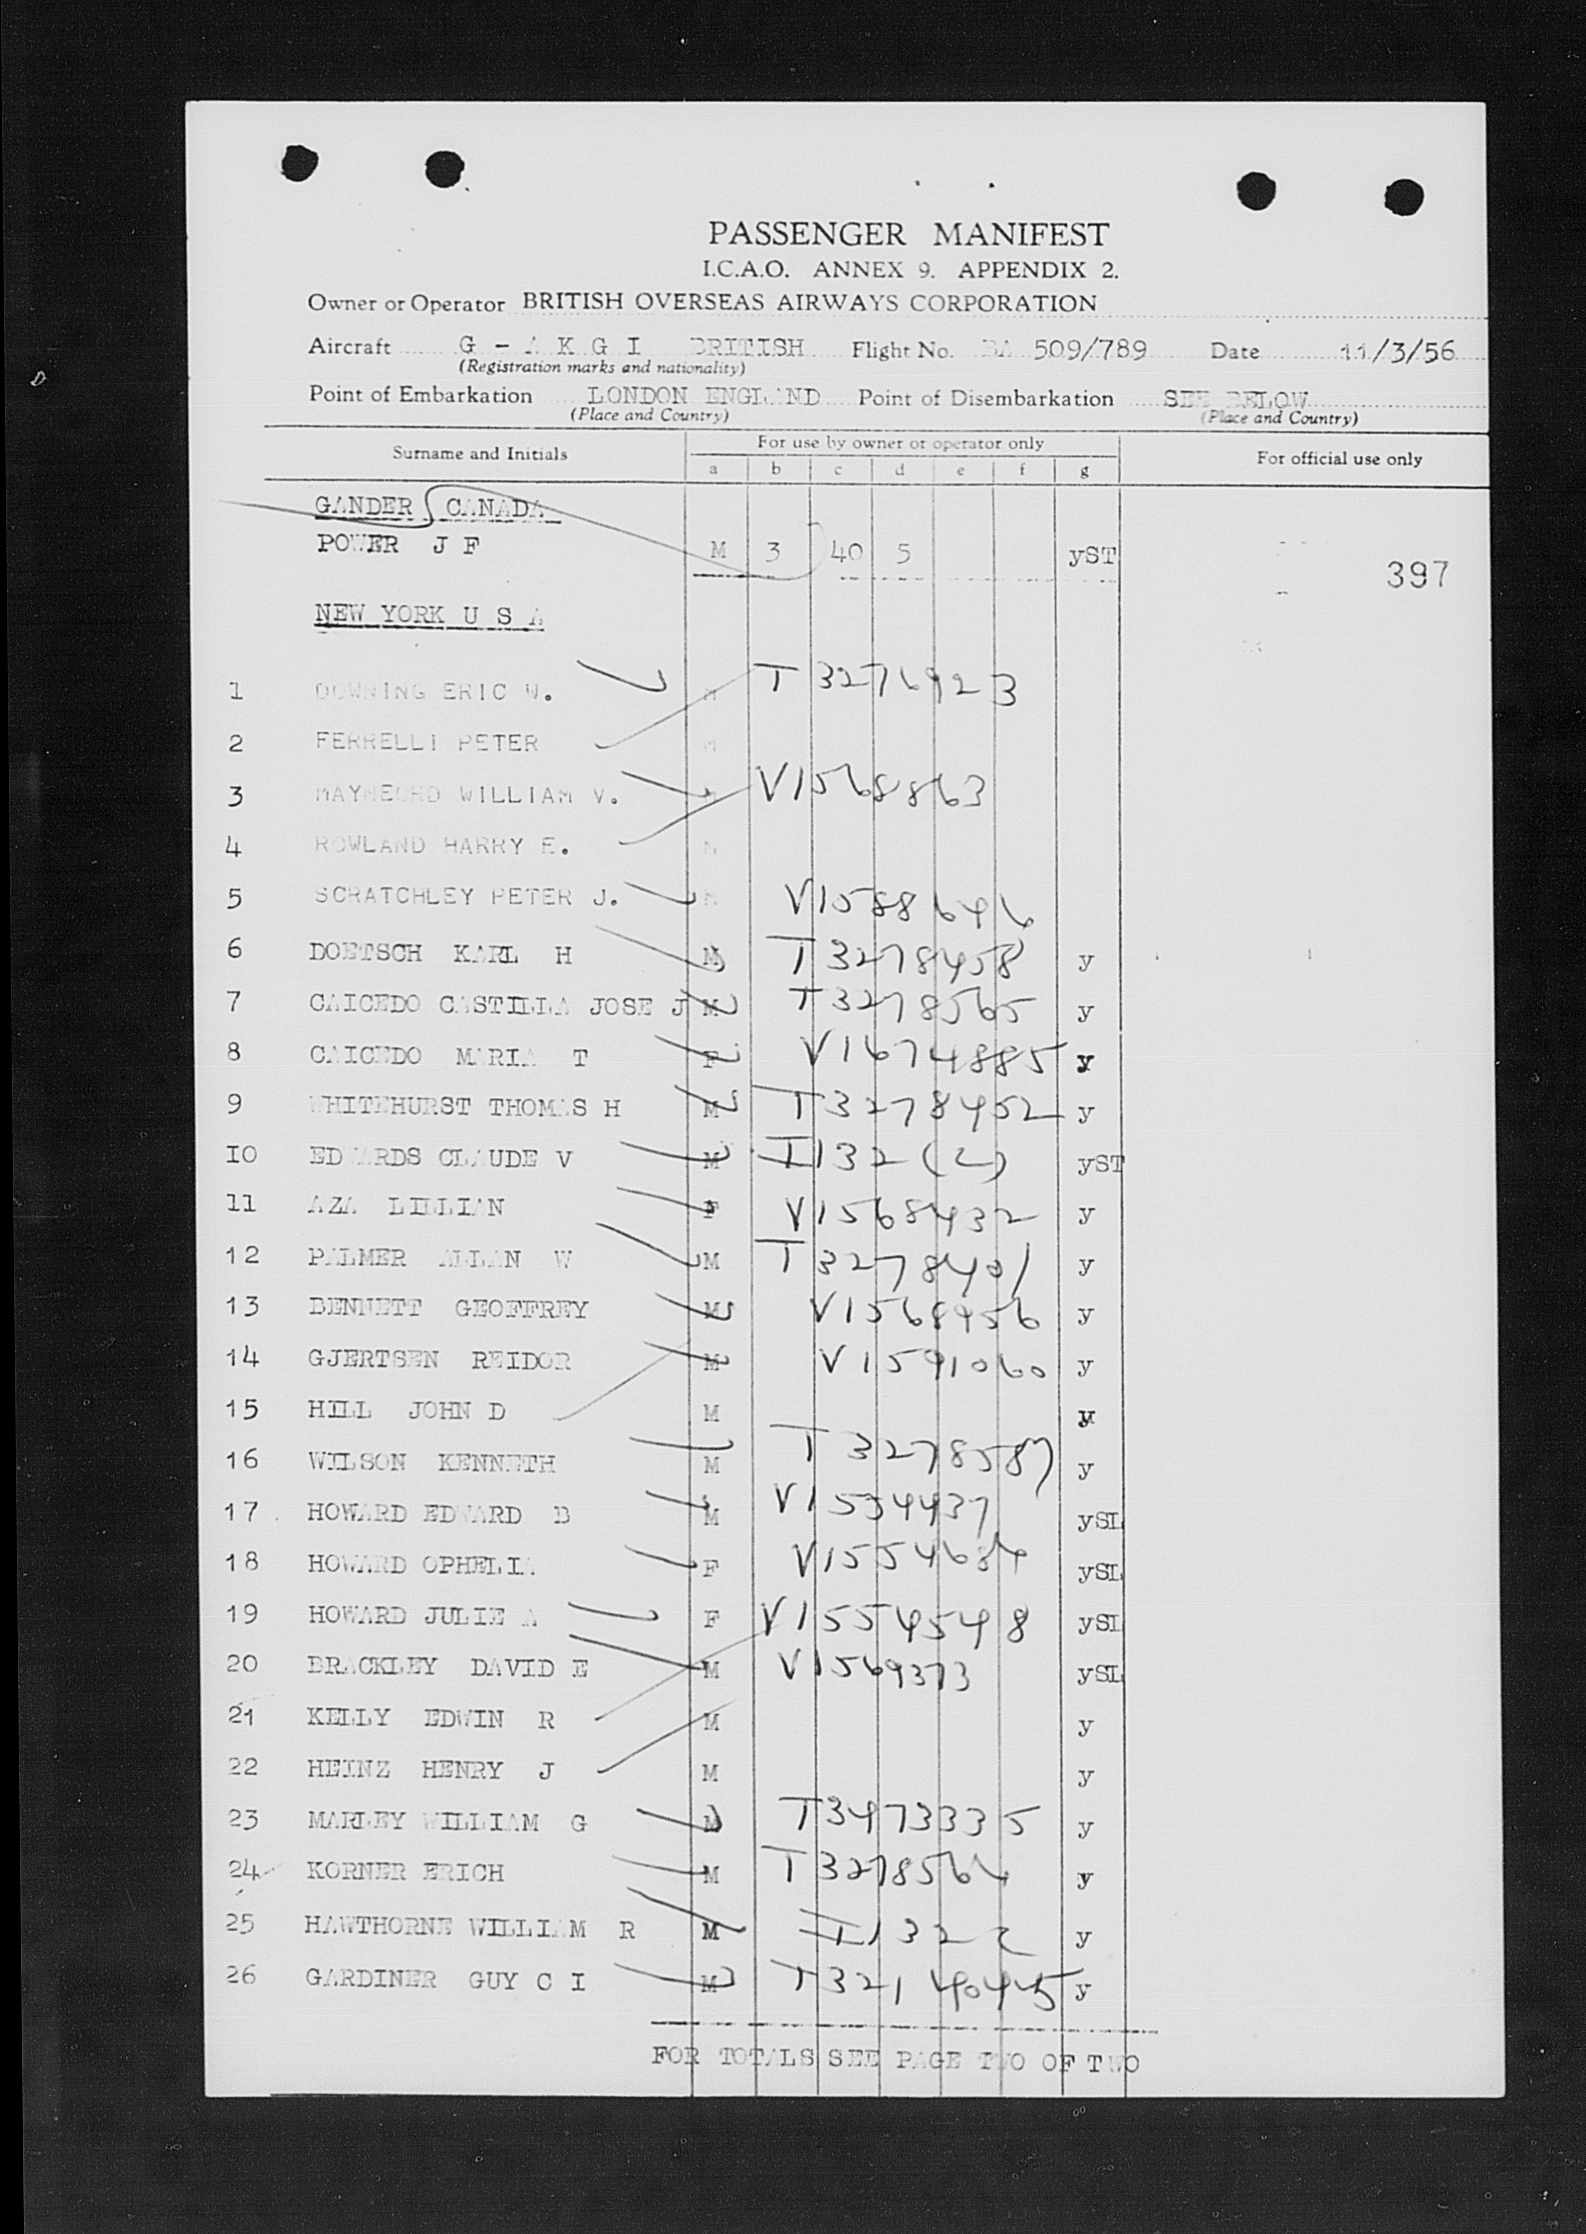 PASSENGER MANIFEST
I.C.A.O. ANNEX 9. APPENDIX 2.
Owner or Operator BRITISH OVERSEAS AIRWAYS CORPORATION
Aircraft G - A K G I BRITISH Flight No. BA 509/789 Date 11/3/56
(Registration marks and nationality)
Point of Embarkation LONDON ENGLAND Point of Disembarkation SEE BELOW
(Place and Country) (Place and Country)
Surname and Initials For use by owner or operator only For official use only
a b c d e f g
GANDER CANADA
POWER J F M 3 40 5 yST
397
NEW YORK U S A
1 DOWNING ERIC W. M T 3276923
2 FERRELLI PETER M
3 WILLIAM V. V1568863
4 ROWLAND HARRY E. M
5 SCRATCHLEY PETER J. M V1588646
6 DOETSCH KARL H M T 3278458 y
7 CAICEDO CASTILLA JOSE J M T 3278565 y
8 CAICEDO MARIA T F V1674885 y
9 WHITEHURST THOMAS H M T 3278452 y
10 EDWARDS CLAUDE V M I132(2) yST
11 AZA LILLIAN F V1568432 y
12 PALMER ALLAN W M T 3278401 y
13 BENNETT GEOFFREY M V1568456 y
14 GJERTSEN REIDOR M V1591060 y
15 HILL JOHN D M y
16 WILSON KENNETH M T 3278587 y
17 HOWARD EDWARD B M V1554437 ySL
18 HOWARD OPHELIA F V1554684 ySL
19 HOWARD JULIE A F V1554548 ySL
20 BRACKLEY DAVID E M V1569373 ySL
21 KELLY EDWIN R M y
22 HEINZ HENRY J M y
23 MARLEY WILLIAM G M T3473335 y
24 KORNER ERICH M T 3278564 y
25 HAWTHORNE WILLIAM R M I1322 y
26 GARDINER GUY C I M T 3214045 y
FOR TOTALS SEE PAGE TWO OF TWO